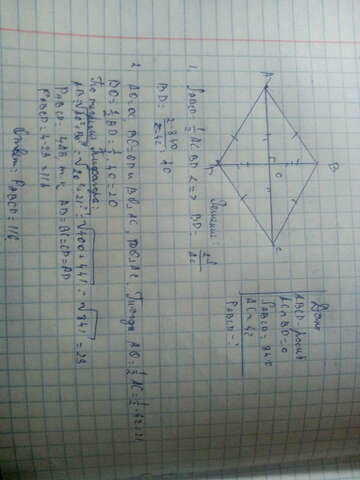 Дано
ABCD - ромб
AC ∩ BD = O
SABCD = 840
AC = 42
PABCD - ?
A
B
C
D
O
Решение:
1. SABCD = 1/2 AC · BD <=> BD = 2S/AC
BD = 2·840/42 = 40
2. AO = OC BO = OD и BD ⊥ AC, Тогда AO = 1/2 AC = 1/2 · 42 = 21
BO = 1/2 BD = 1/2 · 40 = 20
По теореме Пифагора:
AB = √20² + 21² = √400 + 441 = √841 = 29
PABCD = 4·AB т.к. AB = BC = CD = AD
PABCD = 4·29 = 116
Ответ: PABCD = 116